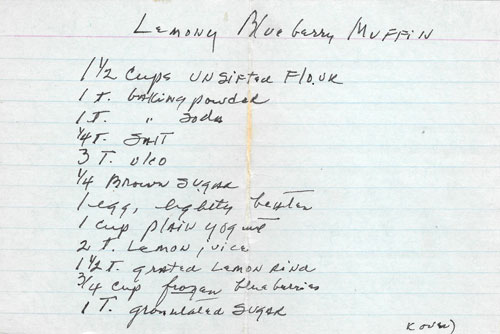 Lemony Blueberry Muffin
1 1/2 cups unsifted flour
1 T. baking powder
1 T. " soda
1/4 T. Salt
3 T. oleo
1/4 Brown sugar
1 egg, lightly beaten
1 cup plain yogurt
2 T. Lemon juice
1 1/2 T. grated Lemon Rind
3/4 cup frozen blueberries
1 T. granulated sugar
(over)